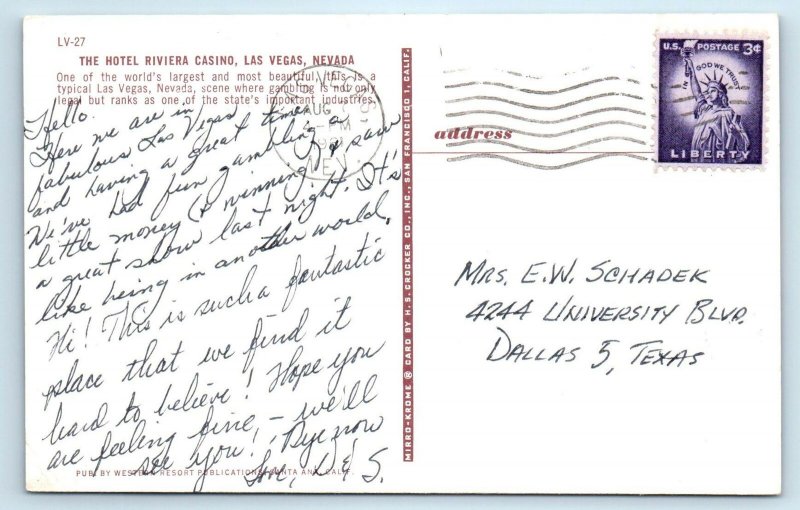 LV-27
THE HOTEL RIVIERA CASINO, LAS VEGAS, NEVADA
One of the world's largest and most beautiful, this is a
typical Las Vegas, Nevada, scene where gambling is not only
legal but ranks as one of the state's important industries.
Hello.
Here we are in
fabulous Las Vegas
and having a great time.
We've had fun gambling a
little money (& winning) & saw
a great show last night. It's
like being in another world.
Hi! This is such a fantastic
place that we find it
hard to believe! Hope you
are feeling fine – we'll
see you! Bye now
Love, D & S.
PUB. BY WESTERN RESORT PUBLICATIONS, SANTA ANA, CALIF.
MIRRO-KROME ® CARD BY H. S. CROCKER CO., INC., SAN FRANCISCO 1, CALIF.
AUG
PM
NEV.
address
U.S. POSTAGE 3¢
IN GOD WE TRUST
LIBERTY
MRS. E.W. SCHADEK
4244 UNIVERSITY BLVD.
DALLAS 5, TEXAS